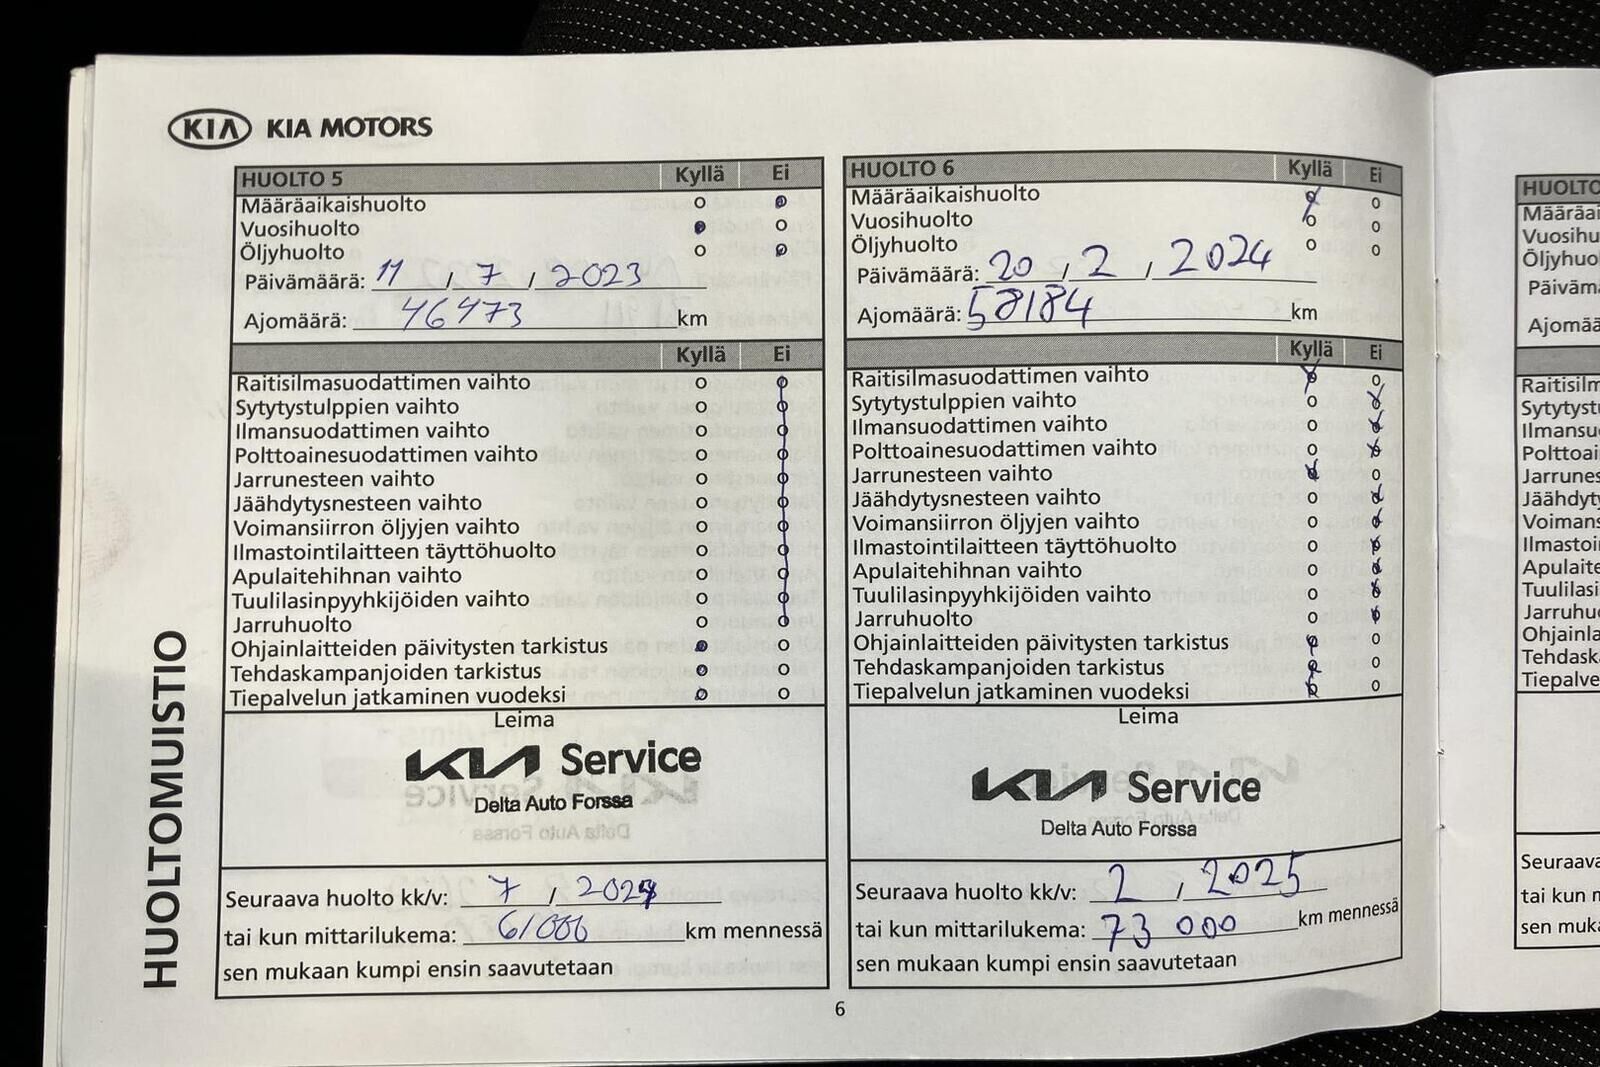 KIA KIA MOTORS
HUOLTOMUISTIO
HUOLTO 5 Kyllä Ei
Määräaikaishuolto
Vuosihuolto
Öljyhuolto
Päivämäärä: 11 / 7 / 2023
Ajomäärä: 46473 km
Kyllä Ei
Raitisilmasuodattimen vaihto
Sytytystulppien vaihto
Ilmansuodattimen vaihto
Polttoainesuodattimen vaihto
Jarrunesteen vaihto
Jäähdytysnesteen vaihto
Voimansiirron öljyjen vaihto
Ilmastointilaitteen täyttöhuolto
Apulaitehihnan vaihto
Tuulilasinpyyhkijöiden vaihto
Jarruhuolto
Ohjainlaitteiden päivitysten tarkistus
Tehdaskampanjoiden tarkistus
Tiepalvelun jatkaminen vuodeksi
Leima
KIA Service
Delta Auto Forssa
Seuraava huolto kk/v: 7 / 2024
tai kun mittarilukema: 61000 km mennessä
sen mukaan kumpi ensin saavutetaan
HUOLTO 6 Kyllä Ei
Määräaikaishuolto
Vuosihuolto
Öljyhuolto
Päivämäärä: 20 / 2 / 2024
Ajomäärä: 58184 km
Kyllä Ei
Raitisilmasuodattimen vaihto
Sytytystulppien vaihto
Ilmansuodattimen vaihto
Polttoainesuodattimen vaihto
Jarrunesteen vaihto
Jäähdytysnesteen vaihto
Voimansiirron öljyjen vaihto
Ilmastointilaitteen täyttöhuolto
Apulaitehihnan vaihto
Tuulilasinpyyhkijöiden vaihto
Jarruhuolto
Ohjainlaitteiden päivitysten tarkistus
Tehdaskampanjoiden tarkistus
Tiepalvelun jatkaminen vuodeksi
Leima
KIA Service
Delta Auto Forssa
Seuraava huolto kk/v: 2 / 2025
tai kun mittarilukema: 73 000 km mennessä
sen mukaan kumpi ensin saavutetaan
6
HUOLTO
Seuraava
tai kun
sen